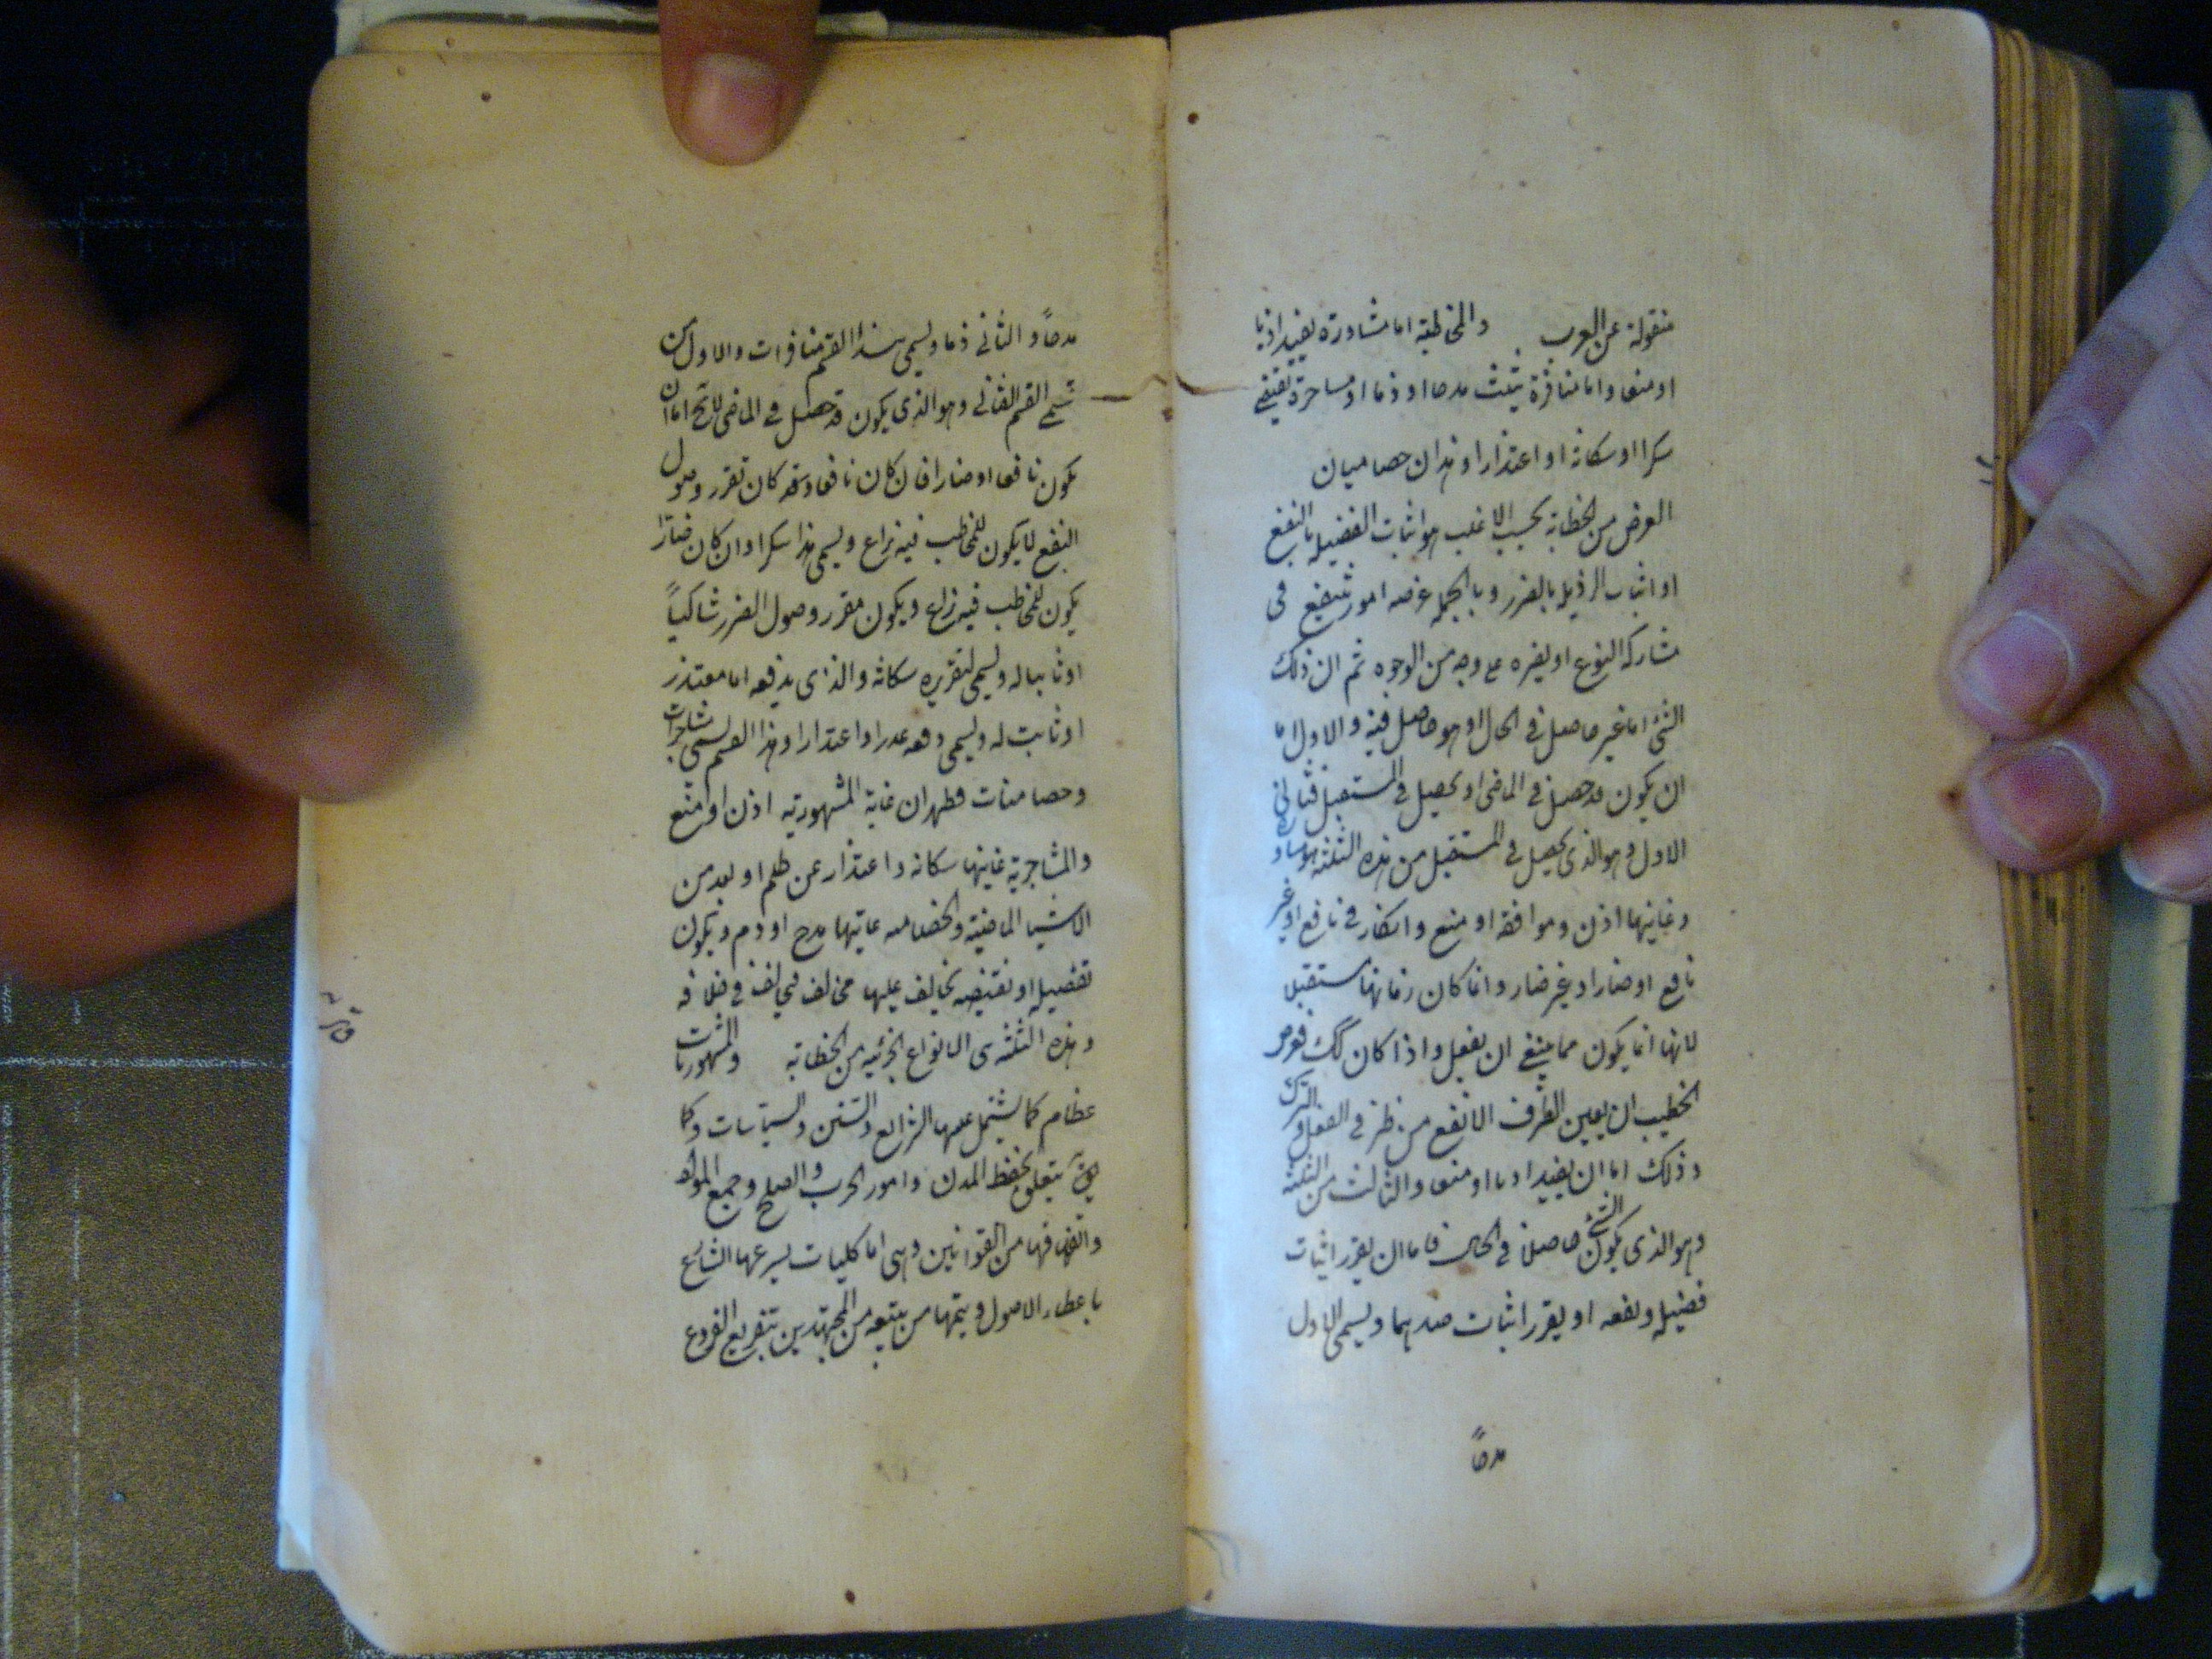 منقولة عن العرب والمخاطبة اما مشاورة يفيد اذنا
او منعا واما منافرة يثبت مدحا او ذما او مشاجرة يقتضي
شكرا او شكاية او اعتذارا وهذان خصاميان
الغرض من الخطابة بحسب الاغلب هو اثبات الفضيلة بالنفع
او اثبات الرذيلة بالضرر وبالجملة غرضه امور ينتفع فى
مشاركة النوع او يضره على وجه من الوجوه ثم ان ذلك
الشئ اما غير حاصل فى الحال او هو حاصل فيه والاول اما
ان يكون قد حصل فى الماضى او يحصل فى المستقبل فثانى
الاول وهو الذى يحصل فى المستقبل من هذه الثلثة هو مشاورة
وغاينها اذن وموافقة او منع وانكار فى نافع او غير
نافع او ضار او غير ضار وانما كان زمانها مستقبلا
لانها انما يكون مما ينبغى ان يفعل واذا كان كك فغرض
الخطيب ان يعين الطرف الانفع من نظر فى الفعل والترك
وذلك اما ان يفيد اذنا او منعا والثالث من الثلثة
وهو الذى يكون الشئ حاصلا فى الحال فاما ان يقرر اثبات
فضيلة ونفعه او يقرر اثبات ضدهما ويسمى الاول
مدحاً
مدحاً والثانى ذما ويسمى هذا القسم منافرات والاول من
قسمى القسم الثانى وهو الذى يكون قد حصل فى الماضى لا يخ اما ان
يكون نافعا او ضارا فان كان نافعا وقد كان تقرر وصول
النفع لا يكون للمخاطب فيه نزاع ويسمى هذا شكرا وان كان ضارّا
يكون للمخاطب فيه نزاع ويكون مقرر وصول الضرر شاكياً
ويسمى تقريره شكاية والذى يدفعه اما معتذر
او ثابت له ويسمى دفعه عذرا او اعتذارا وهذا القسم يسمى مشاجرات
وخصاميات فظهر ان غاية المشهورية اذن او منع
والمشاجرية غاينها شكاية واعتذار عن ظلم او بعد من
الاشيا الماضية والخصامية غايتها مدح او ذم ويكون
تفضيله او نقيضه يخالف عليها مخالف فيخالف فى خلافه
وهذه الثلثة هى الانواع الجزئية من الخطابة والمشهورات
عظام كما يشتمل عليها الشرايع والسنن والسياسات وكما
يتعلق بحفظ المدن وامور الحرب والصلح وجمع
فيها من القوانين وهى اما كليات يشرعها الشارع
باعطاء الاصول ويتمها من يتبعه من المجتهدين بتفريع الفروع